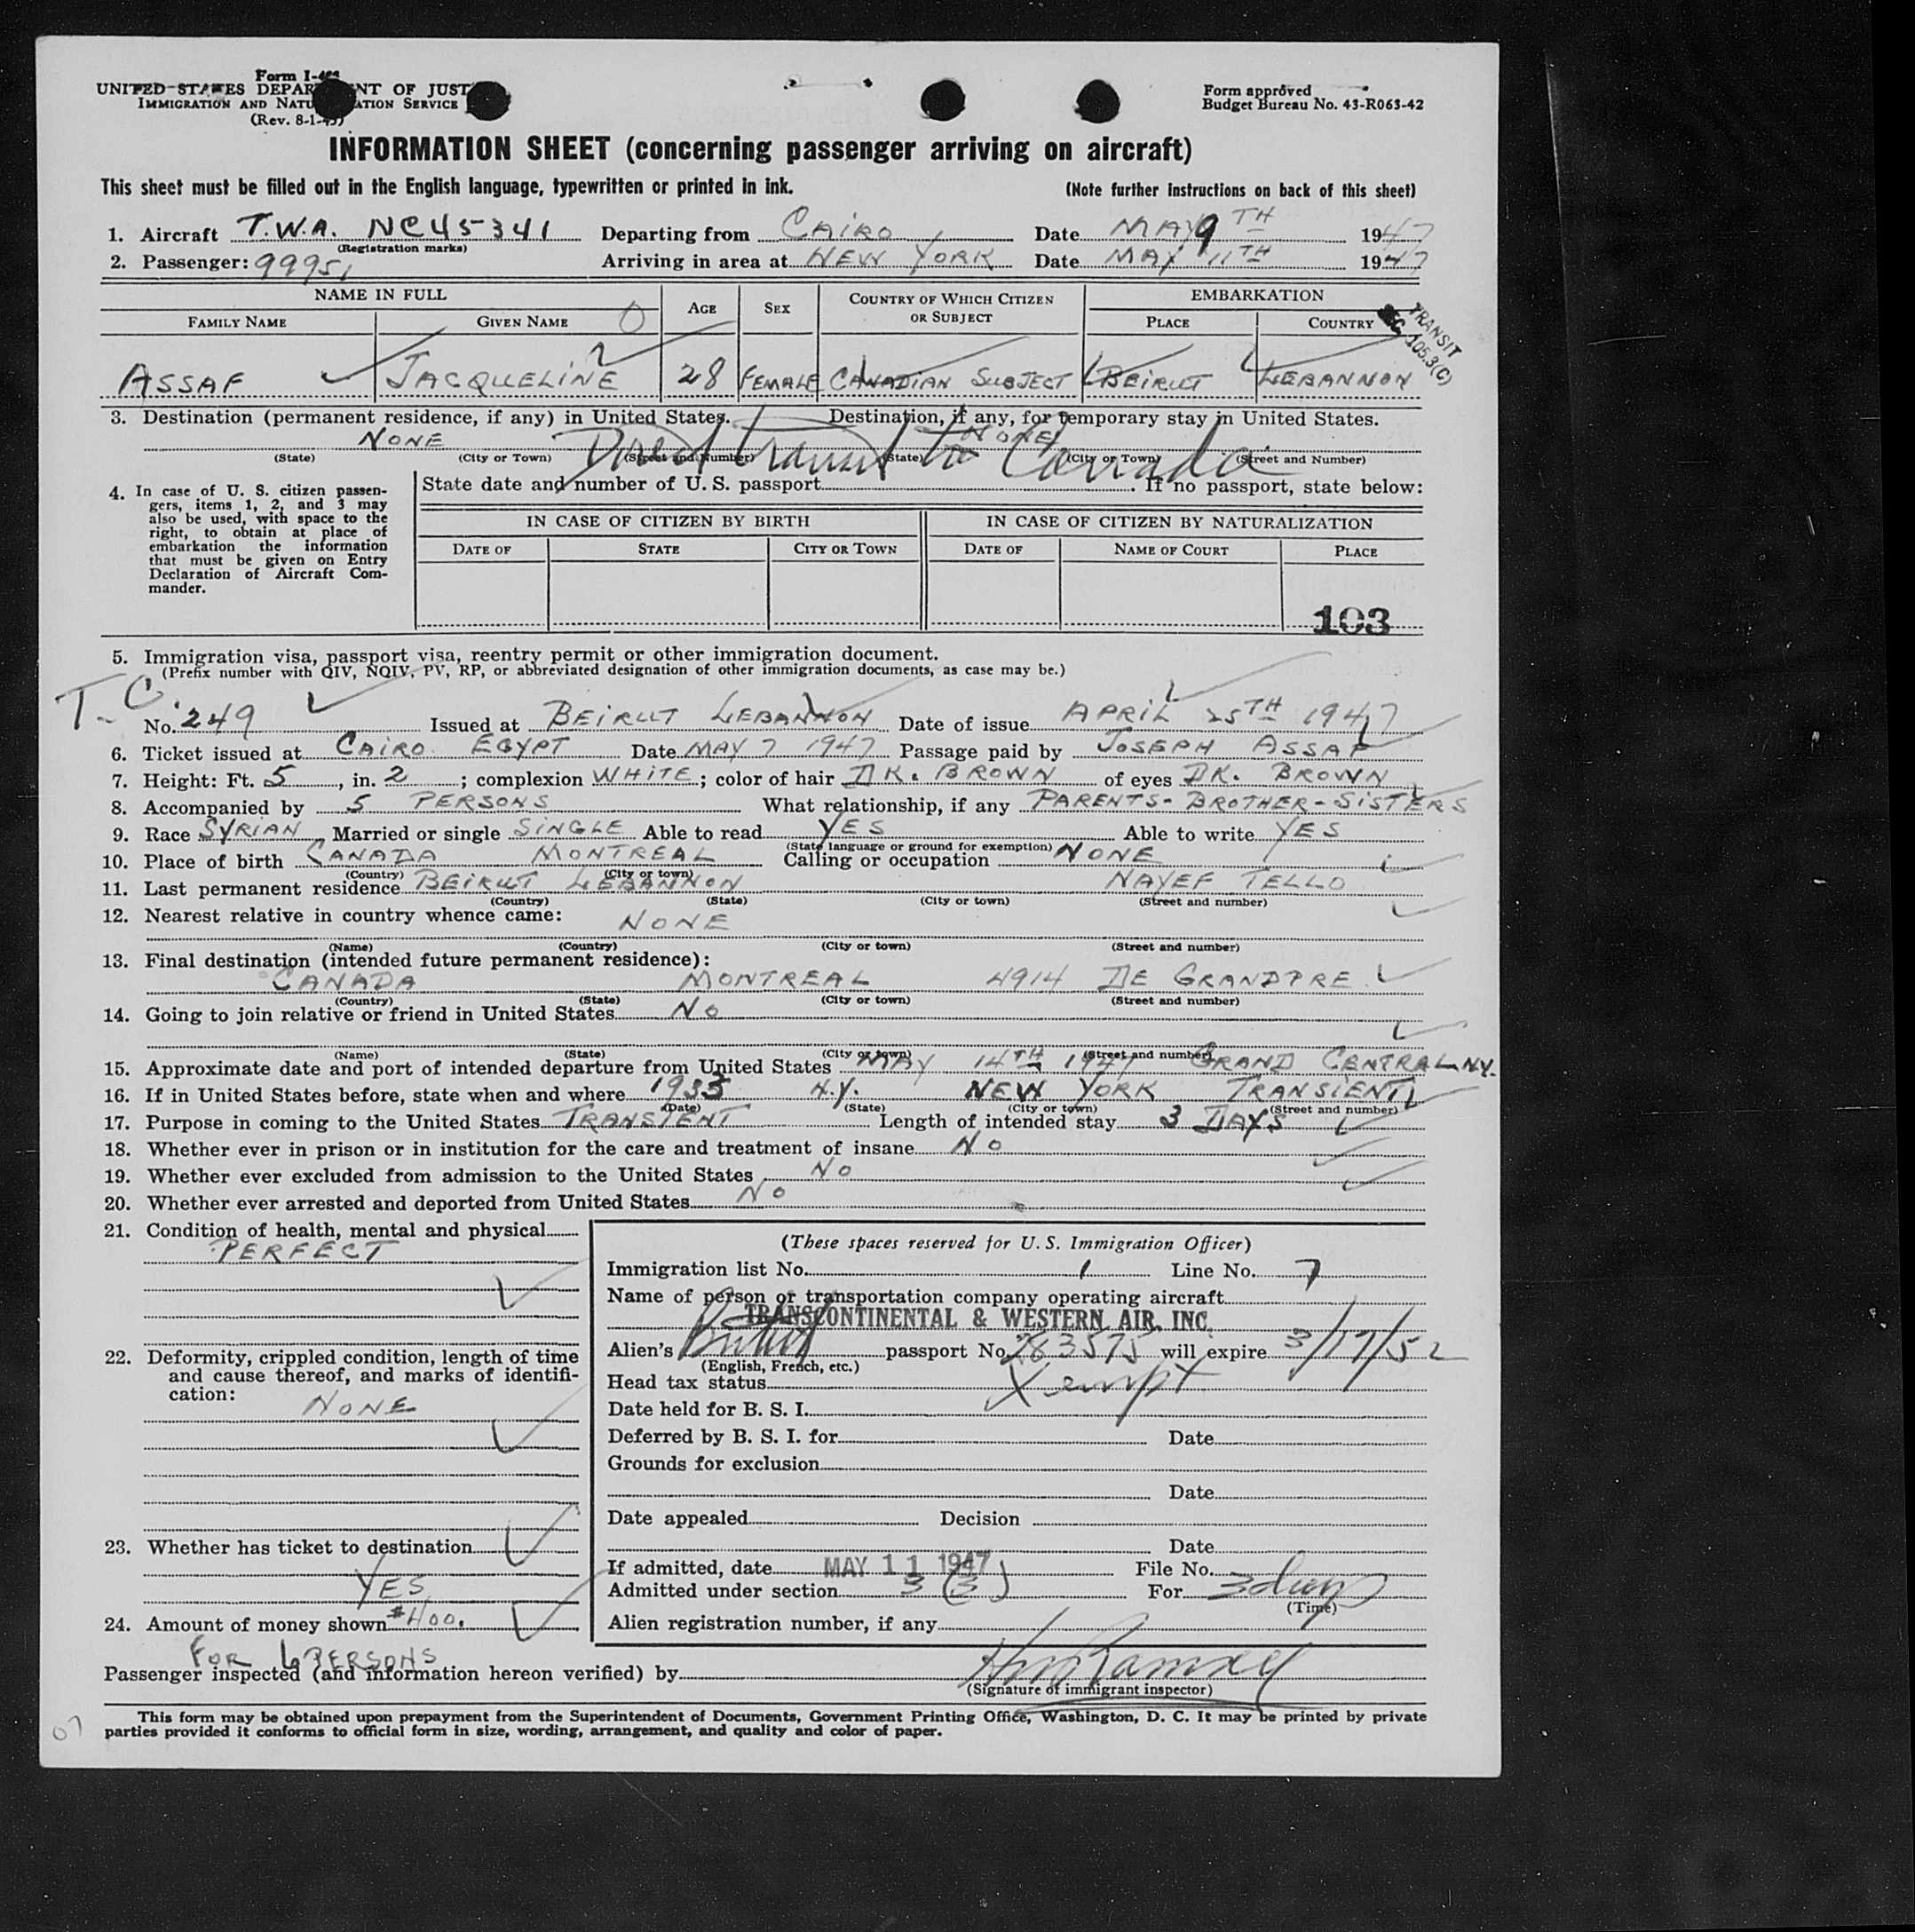 Form I-
UNITED STATES DEPARTMENT OF JUSTICE
IMMIGRATION AND NATURALIZATION SERVICE
(Rev. 8-1-45)
Form approved
Budget Bureau No. 43-R063-42
INFORMATION SHEET (concerning passenger arriving on aircraft)
This sheet must be filled out in the English language, typewritten or printed in ink. (Note further instructions on back of this sheet)
1. Aircraft T.W.A. NC45341 Departing from CAIRO Date MAY 9TH 1947
(Registration marks)
2. Passenger: 99951 Arriving in area at NEW YORK Date MAY 11TH 1947
NAME IN FULL AGE SEX COUNTRY OF WHICH CITIZEN OR SUBJECT EMBARKATION
FAMILY NAME GIVEN NAME PLACE COUNTRY
TRANSIT
SEC. 105.3(C)
ASSAF JACQUELINE 28 FEMALE CANADIAN SUBJECT BEIRUT LEBANNON
3. Destination (permanent residence, if any) in United States. Destination, if any, for temporary stay in United States.
NONE NONE
Direct transit to Canada
(State) (City or Town) (Street and Number) (State) (City or Town) (Street and Number)
4. In case of U. S. citizen passengers, items 1, 2, and 3 may also be used, with space to the right, to obtain at place of embarkation the information that must be given on Entry Declaration of Aircraft Commander.
State date and number of U. S. passport. If no passport, state below:
IN CASE OF CITIZEN BY BIRTH IN CASE OF CITIZEN BY NATURALIZATION
DATE OF STATE CITY OR TOWN DATE OF NAME OF COURT PLACE
103
5. Immigration visa, passport visa, reentry permit or other immigration document.
(Prefix number with QIV, NQIV, PV, RP, or abbreviated designation of other immigration documents, as case may be.)
T.C.
No. 249 Issued at BEIRUT LEBANNON Date of issue APRIL 25TH 1947
6. Ticket issued at CAIRO EGYPT Date MAY 7 1947 Passage paid by JOSEPH ASSAF
7. Height: Ft. 5, in. 2; complexion WHITE; color of hair DK. BROWN of eyes DK. BROWN
8. Accompanied by 5 PERSONS What relationship, if any PARENTS-BROTHER-SISTERS
9. Race SYRIAN Married or single SINGLE Able to read YES Able to write YES
(State language or ground for exemption)
10. Place of birth CANADA MONTREAL Calling or occupation NONE
(Country) (City or town)
11. Last permanent residence BEIRUT LEBANNON NAYEF TELLO
(Country) (State) (City or town) (Street and number)
12. Nearest relative in country whence came: NONE
(Name) (Country) (City or town) (Street and number)
13. Final destination (intended future permanent residence):
CANADA MONTREAL 4914 DE GRANDPRE
(Country) (State) (City or town) (Street and number)
14. Going to join relative or friend in United States NO
(Name) (State) (City or town) (Street and number)
15. Approximate date and port of intended departure from United States MAY 14TH 1947 GRAND CENTRAL N.Y.
16. If in United States before, state when and where 1933 N.Y. NEW YORK TRANSIENT
(Date) (State) (City or town) (Street and number)
17. Purpose in coming to the United States TRANSIENT Length of intended stay 3 DAYS
18. Whether ever in prison or in institution for the care and treatment of insane NO
19. Whether ever excluded from admission to the United States NO
20. Whether ever arrested and deported from United States NO
21. Condition of health, mental and physical
PERFECT
22. Deformity, crippled condition, length of time and cause thereof, and marks of identification:
NONE
23. Whether has ticket to destination
YES
24. Amount of money shown $400.
FOR 6 PERSONS
(These spaces reserved for U. S. Immigration Officer)
Immigration list No. 1 Line No. 7
Name of person or transportation company operating aircraft
TRANSCONTINENTAL & WESTERN AIR, INC.
Alien's British passport No. 283575 will expire 3/17/52
(English, French, etc.)
Head tax status Xempt
Date held for B. S. I.
Deferred by B. S. I. for Date
Grounds for exclusion
Date
Date appealed Decision
Date
If admitted, date MAY 11 1947 File No.
Admitted under section 3 (3) For 3 days
(Time)
Alien registration number, if any
Passenger inspected (and information hereon verified) by
(Signature of immigrant inspector)
This form may be obtained upon prepayment from the Superintendent of Documents, Government Printing Office, Washington, D. C. It may be printed by private
parties provided it conforms to official form in size, wording, arrangement, and quality and color of paper.
07